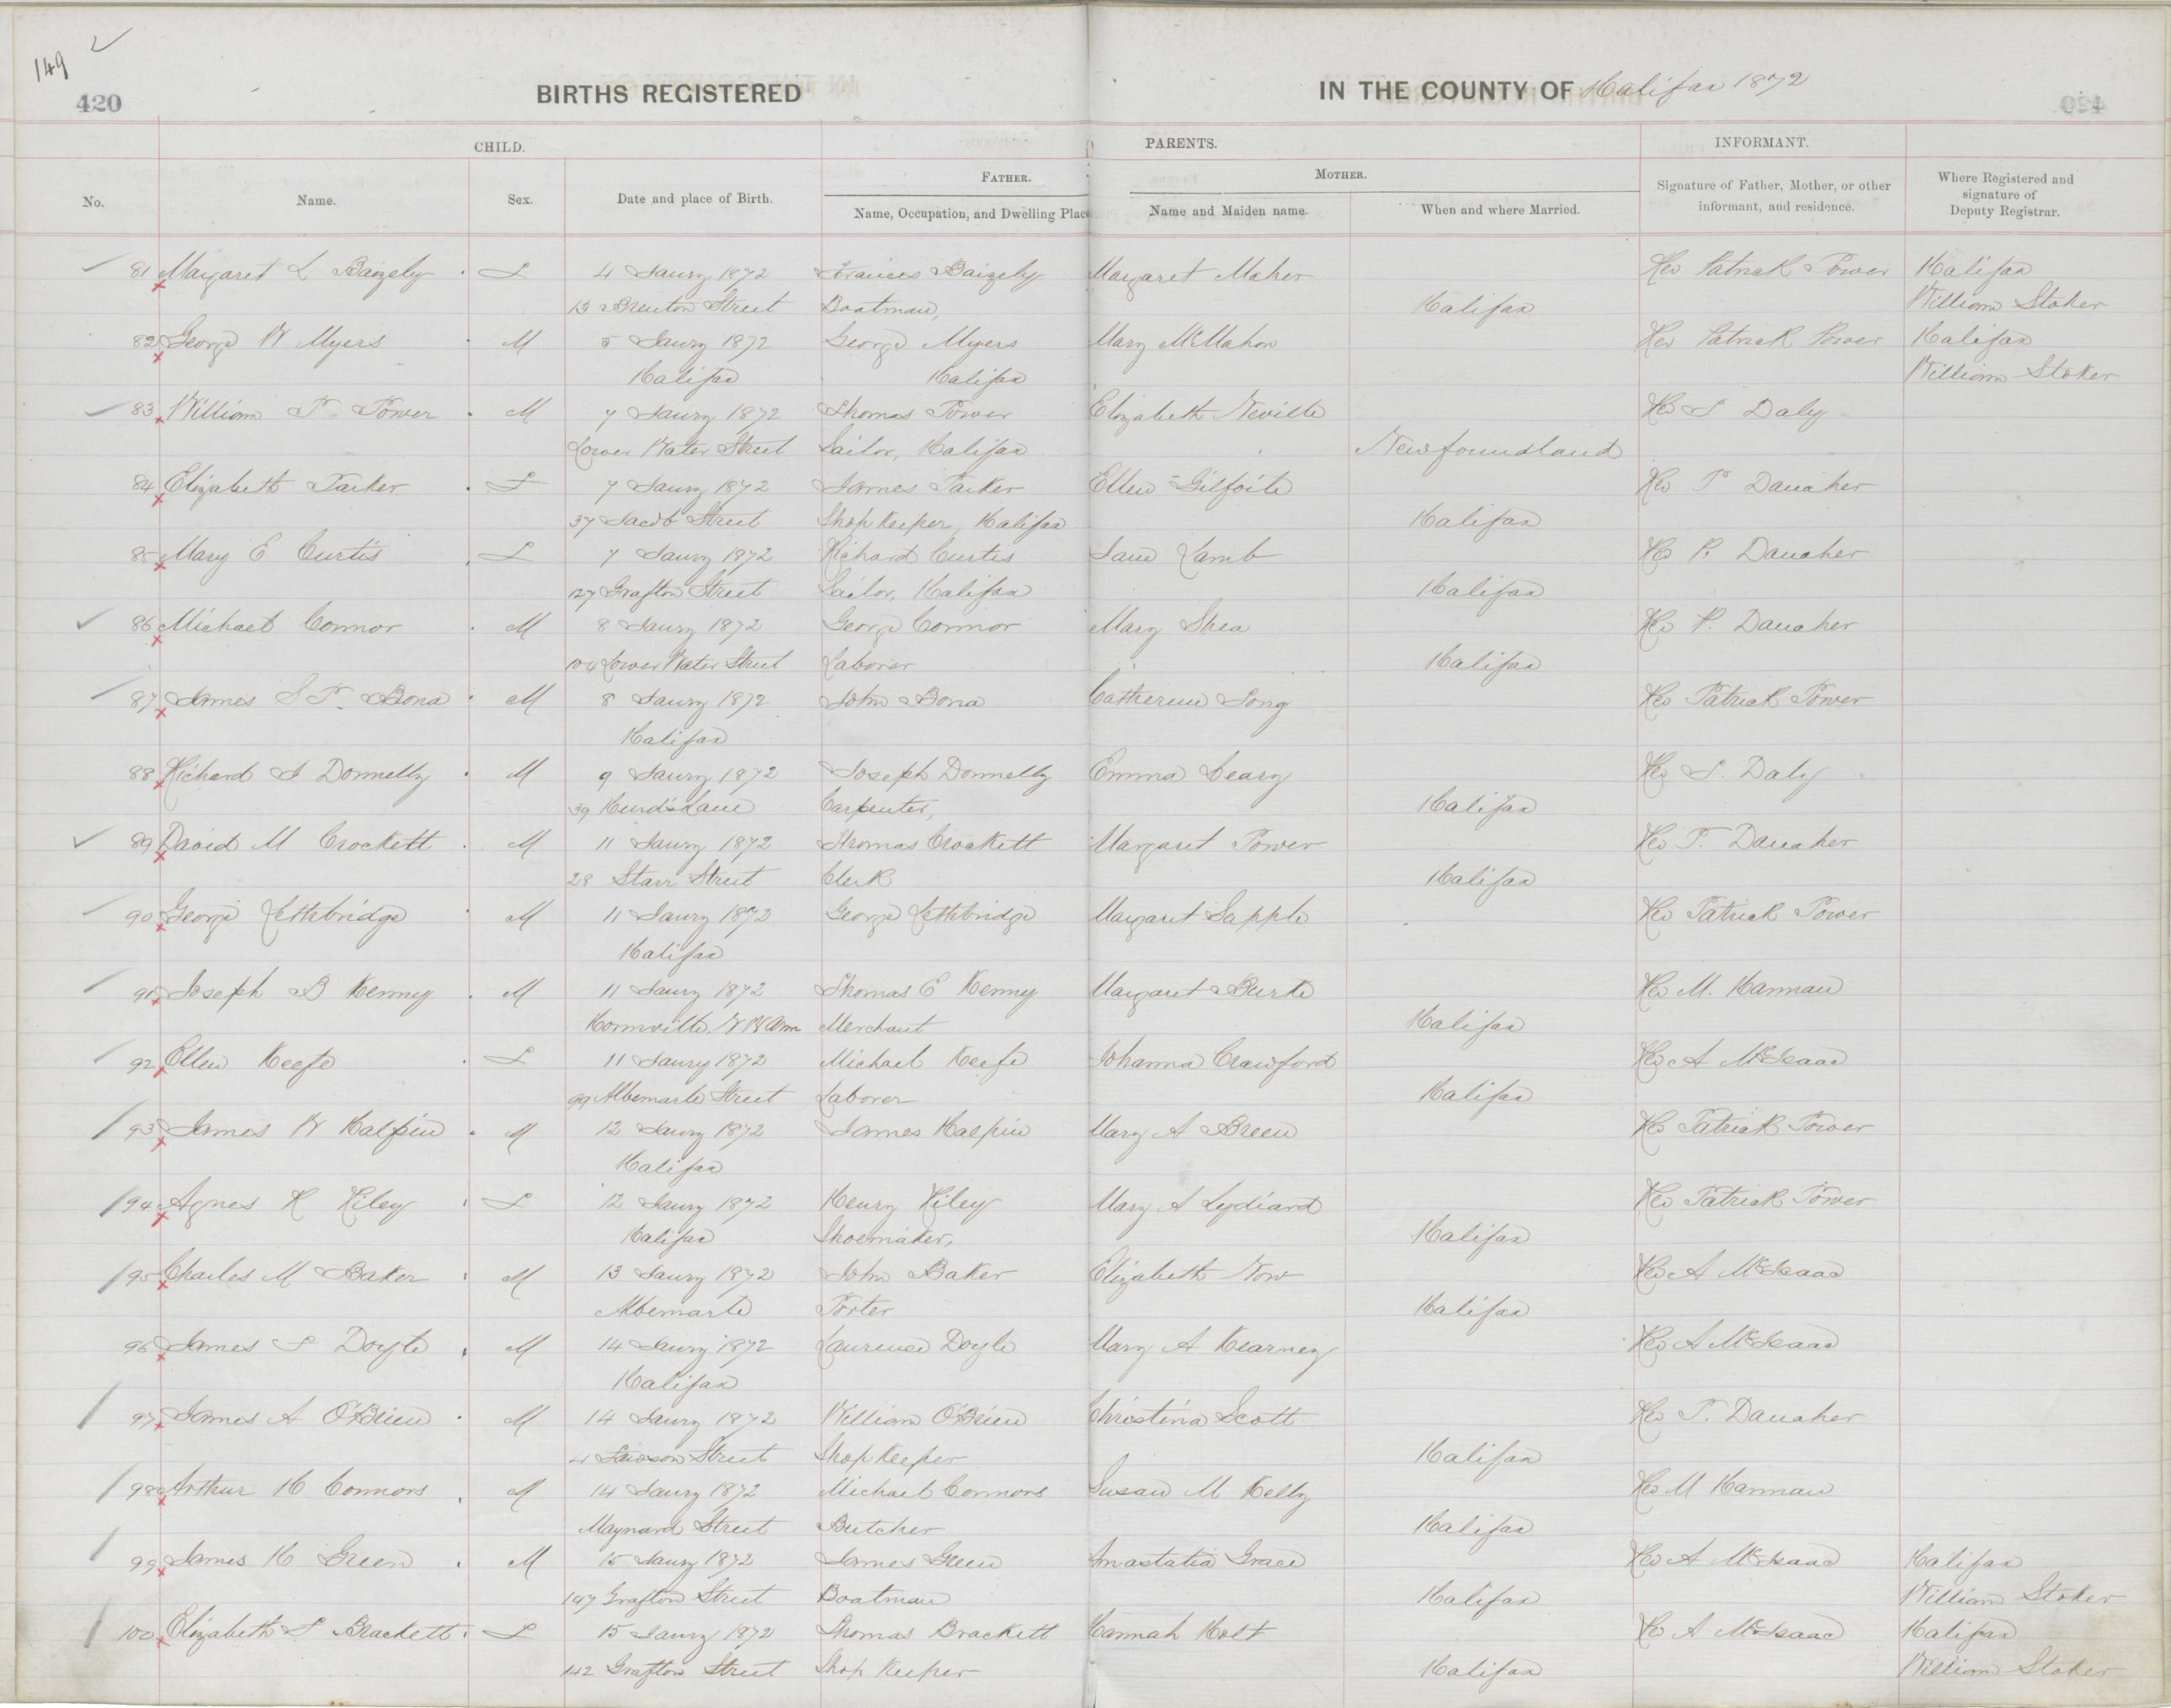 149
420
BIRTHS REGISTERED
IN THE COUNTY OF Halifax 1872
CHILD.
PARENTS.
INFORMANT.
No.
Name.
Sex.
Date and place of Birth.
FATHER.
Name, Occupation, and Dwelling Place
MOTHER.
Name and Maiden name.
When and where Married.
Signature of Father, Mother, or other informant, and residence.
Where Registered and signature of Deputy Registrar.
81 Margaret L Baizely F 4 Jany 1872 Frances Baizely Margaret Maher Rev Patrick Power Halifax
13 Brenton Street Boatman, Halifax William Stoker
82 George W Myers M 5 Jany 1872 George Myers Mary McMahon Rev Patrick Power Halifax
Halifax Halifax William Stoker
83 William P Power M 7 Jany 1872 Thomas Power Elizabeth Neville Rev S Daly
Lower Water Street Sailor, Halifax Newfoundland
84 Elizabeth Parker F 7 Jany 1872 James Parker Ellen Gilfoile Rev P Danaher
37 Jacob Street Shop Keeper, Halifax Halifax
85 Mary E Curtis F 7 Jany 1872 Richard Curtis Jane Lamb Rev P. Danaher
127 Grafton Street Sailor, Halifax Halifax
86 Michael Connor M 8 Jany 1872 George Connor Mary Shea Rev P. Danaher
104 Lower Water Street Laborer Halifax
87 James S P. Bona M 8 Jany 1872 John Bona Catherine Long Rev Patrick Power
Halifax
88 Richard J Donnelly M 9 Jany 1872 Joseph Donnelly Emma Leary Rev S. Daly
39 Hurd's Lane Carpenter, Halifax
89 David M Crockett M 11 Jany 1872 Thomas Crockett Margaret Power Rev P. Danaher
28 Starr Street Clerk Halifax
90 George Lethbridge M 11 Jany 1872 George Lethbridge Margaret Sapple Rev Patrick Power
Halifax
91 Joseph B Kenny M 11 Jany 1872 Thomas E Kenny Margaret Burke Rev M. Hannan
N W Arm Merchant Halifax
92 Ellen Keefe F 11 Jany 1872 Michael Keefe Johanna Crawford Rev A McIsaac
99 Albemarle Street Laborer Halifax
93 James W Halpin M 12 Jany 1872 James Halpin Mary A Breen Rev Patrick Power
Halifax
94 Agnes R Riley F 12 Jany 1872 Henry Riley Mary A Lydiard Rev Patrick Power
Halifax Shoemaker, Halifax
95 Charles M Baker M 13 Jany 1872 John Baker Elizabeth Rev A McIsaac
Albemarle Porter Halifax
96 James S Doyle M 14 Jany 1872 Laurence Doyle Mary A Kearney Rev A McIsaac
Halifax
97 James A O'Brien M 14 Jany 1872 William O'Brien Christina Scott Rev P. Danaher
4 Street Shop Keeper Halifax
98 Arthur H Connors M 14 Jany 1872 Michael Connors Susan M Kelly Rev M Hannan
Maynard Street Butcher Halifax
99 James H Green M 15 Jany 1872 James Green Anastatia Grace Rev A McIsaac Halifax
147 Grafton Street Boatman Halifax William Stoker
100 Elizabeth S Brackett F 15 Jany 1872 Thomas Brackett Hannah Holt Rev A McIsaac Halifax
142 Grafton Street Shop Keeper Halifax William Stoker